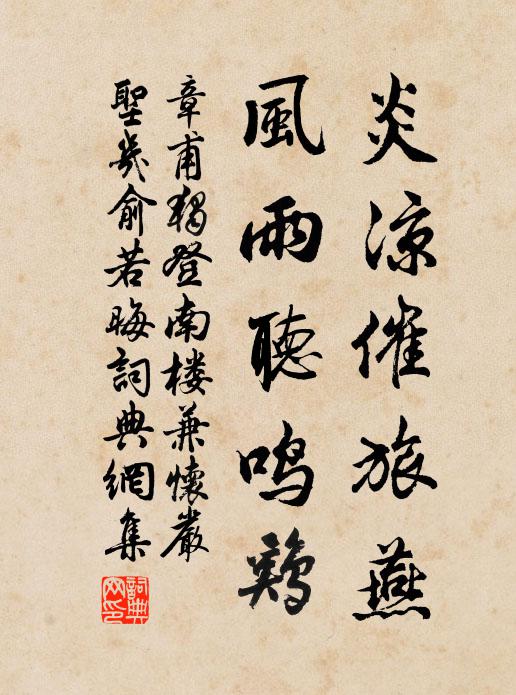 炎凉催旅燕
風雨聽鳴鷄
章甫獨登南楼兼懷嚴
聖幾俞若晦詞典網集
詞典網印